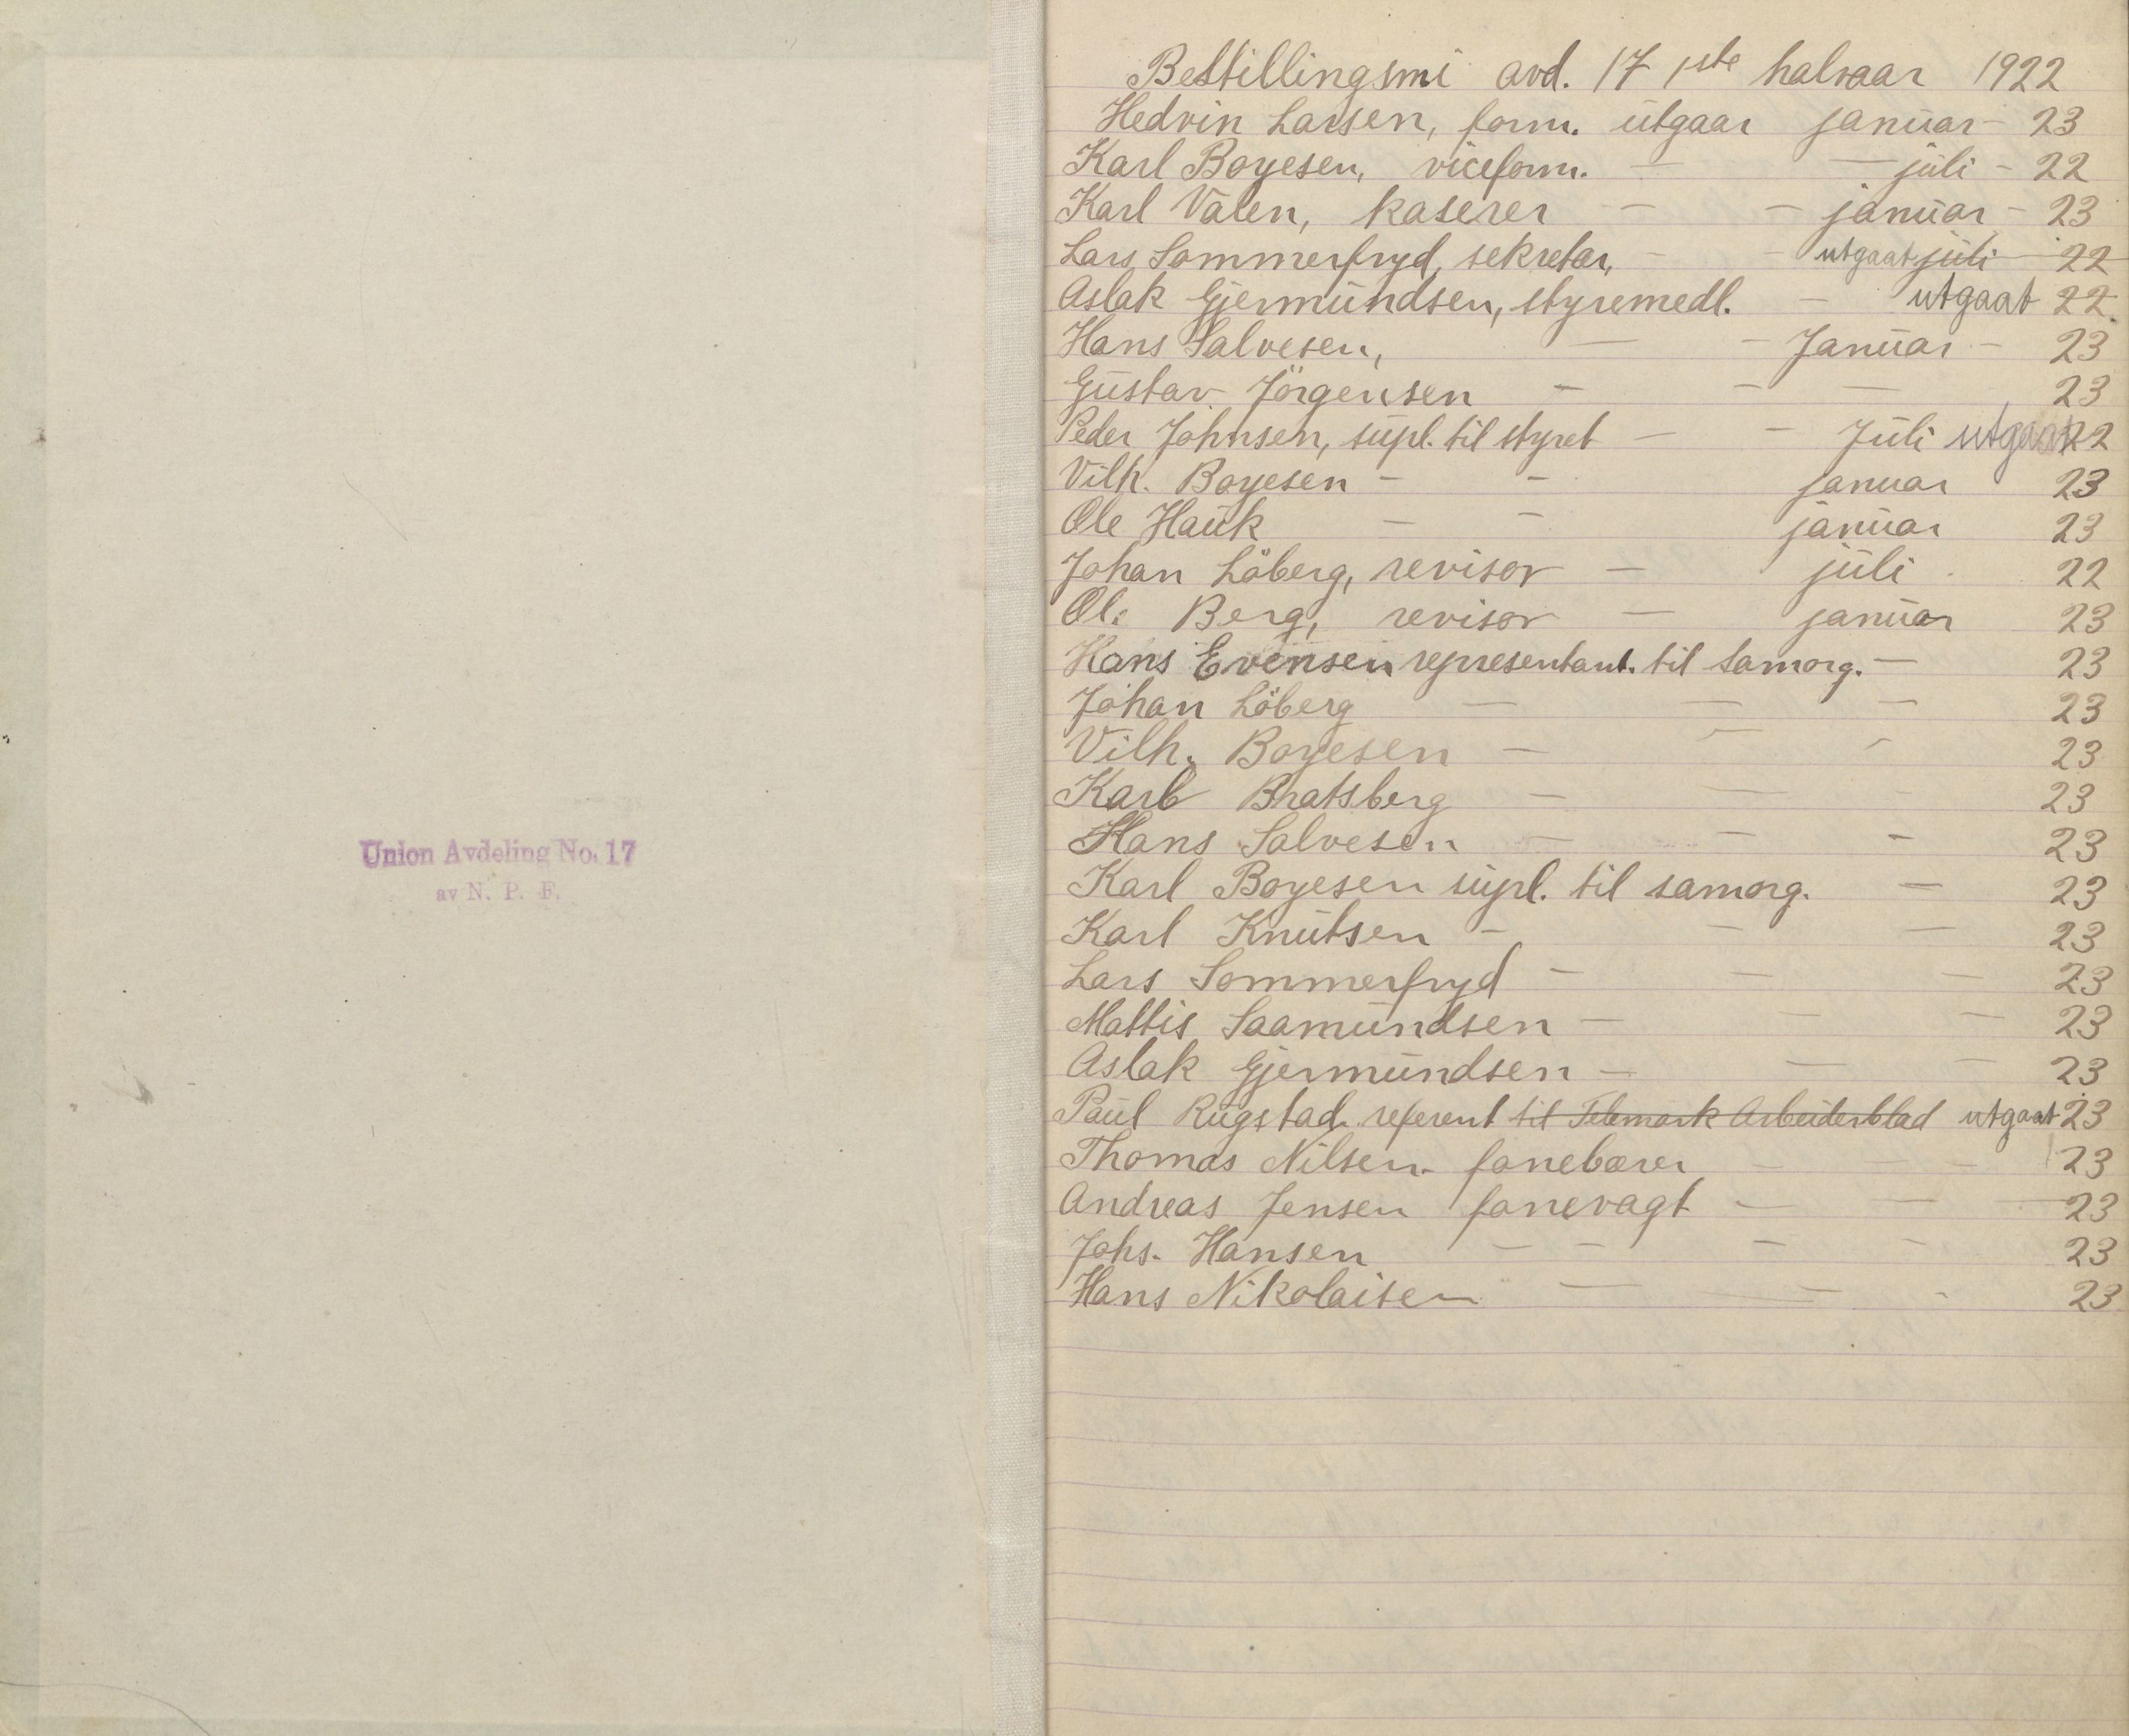 Union Avdeling No. 17
av N. P. F.
Bestillingsmi avd. 17 1ste halvaar 1922
Hedvin Larsen, form. utgaar januar - 23
Karl Boyesen, viceform. - - juli - 22
Karl Valen, kaserer - - januar - 23
Lars Sommerfryd, sekretar, - - utgaat juli 22
Aslak Gjermundsen, styremedl. - utgaat 22.
Hans Salvesen, - - Januar - 23
Gustav Jörgensen - - - 23
Peder Johnsen, supl. til styret - - Juli utgaat 22
Vilh. Boyesen - - januar 23
Ole Hauk - - januar 23
Johan Löberg, revisor - juli 22
Ole Berg, revisor - januar 23
Hans Evensen representant. til samorg. - 23
Johan Löberg - - - 23
Vilh. Boyesen - - - 23
Karl Bratsberg - - - 23
Hans Salvesen - - - 23
Karl Boyesen supl. til samorg. - 23
Karl Knutsen - - - 23
Lars Sommerfryd - - - 23
Mattis Saamundsen - - - 23
Aslak Gjermundsen - - - 23
Paul Rugstad referent til Telemark Arbeiderblad utgaat 23
Thomas Nilsen. fanebærer - - - 23
Andreas Jensen fanevagt - - - 23
Johs. Hansen - - - - 23
Hans Nikolaisen - - - 23